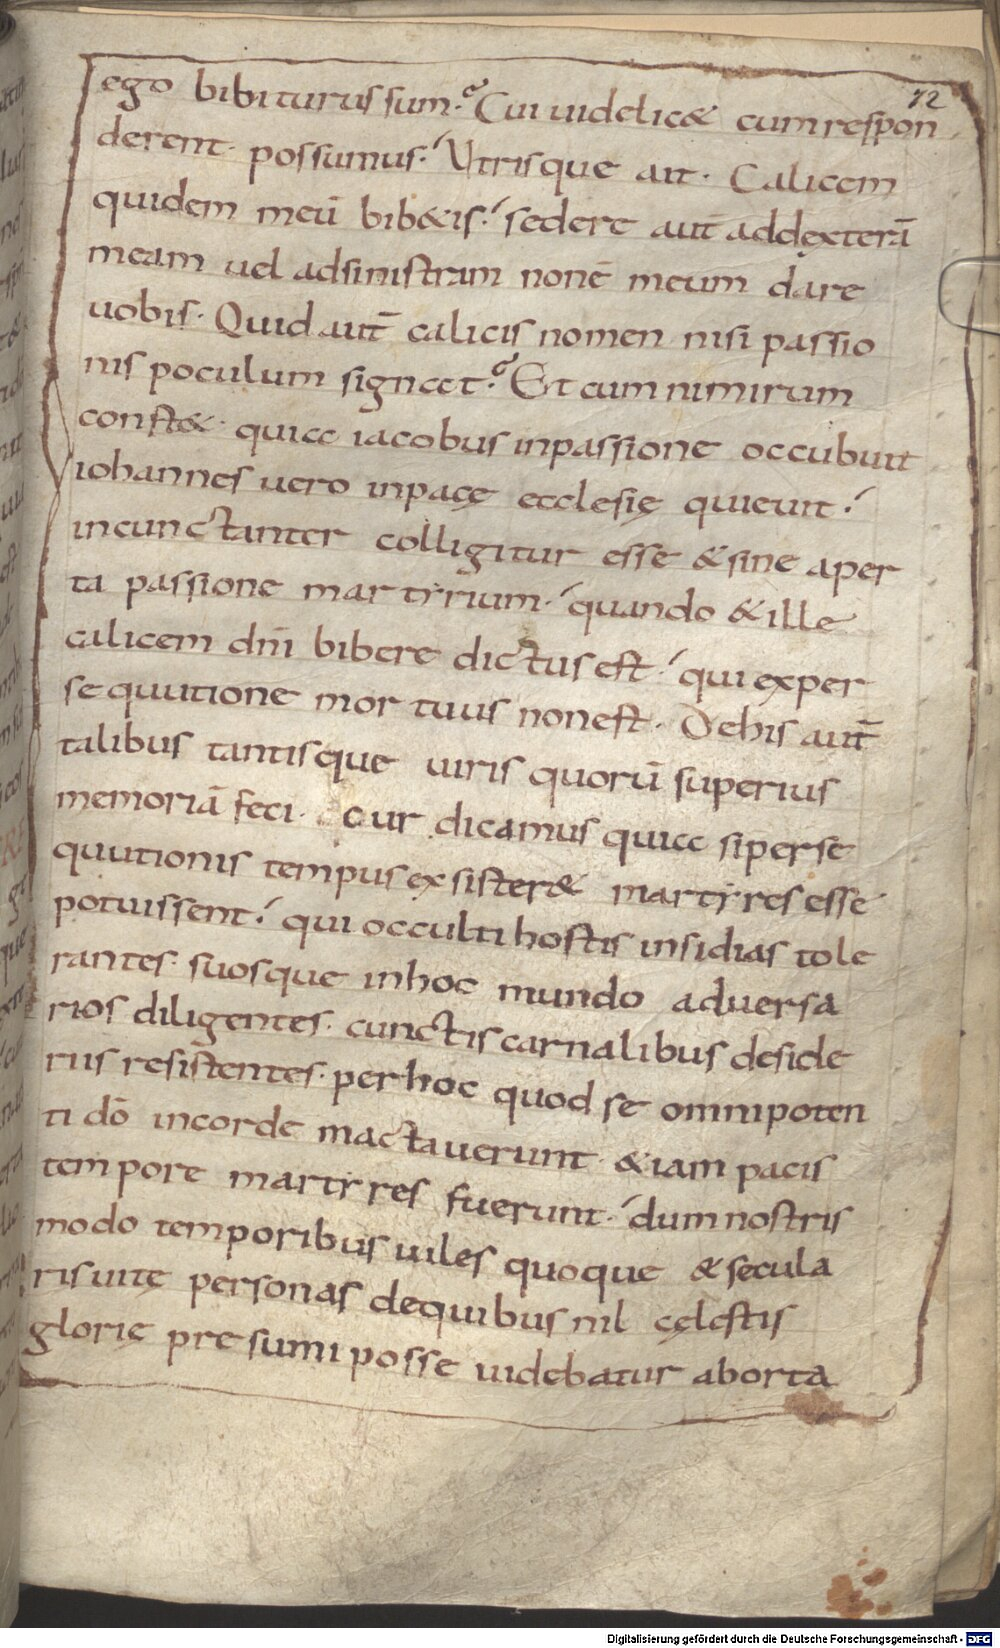 72
ego bibiturus sum. Cui uidelic& cum respon
derent. possumus. Utrisque ait. Calicem
quidem meū bib&is. sedere aut̄ addexterā
meam uel adsinistram nonē meum dare
uobis. Quid aut̄ calicis nomen nisi passio
nis poculum signcct. Et cum nimirum
const&. quicc iacobus inpassione occubuit
iohannes uero inpacę ecclesię quieuit.
incunctanter colligitur esse & sine aper
ta passione martyrium. quando & ille
calicem dn̄i bibere dictus est. qui exper
sequutione mortuus nonest. Dehis aut̄
talibus tantisque uiris quorū superius
memoriā feci. cur dicamus quicc siperse
quutionis tempus exsister& martyres esse
potuissent. qui occulti hostis insidias tole
rantes. suosque inhoc mundo aduersa
rios diligentes. cunctis carnalibus deside
riis resistentes. per hoc quod se omnipoten
ti dō incorde mactauerunt. & iam pacis
tempore martyres fuerunt. dum nostris
modo temporibus uiles quoque & secula
ris uitę personas dequibus nil cęlestis
glorię presumi posse uidebatur aborta
Digitalisierung gefördert durch die Deutsche Forschungsgemeinschaft - DFG